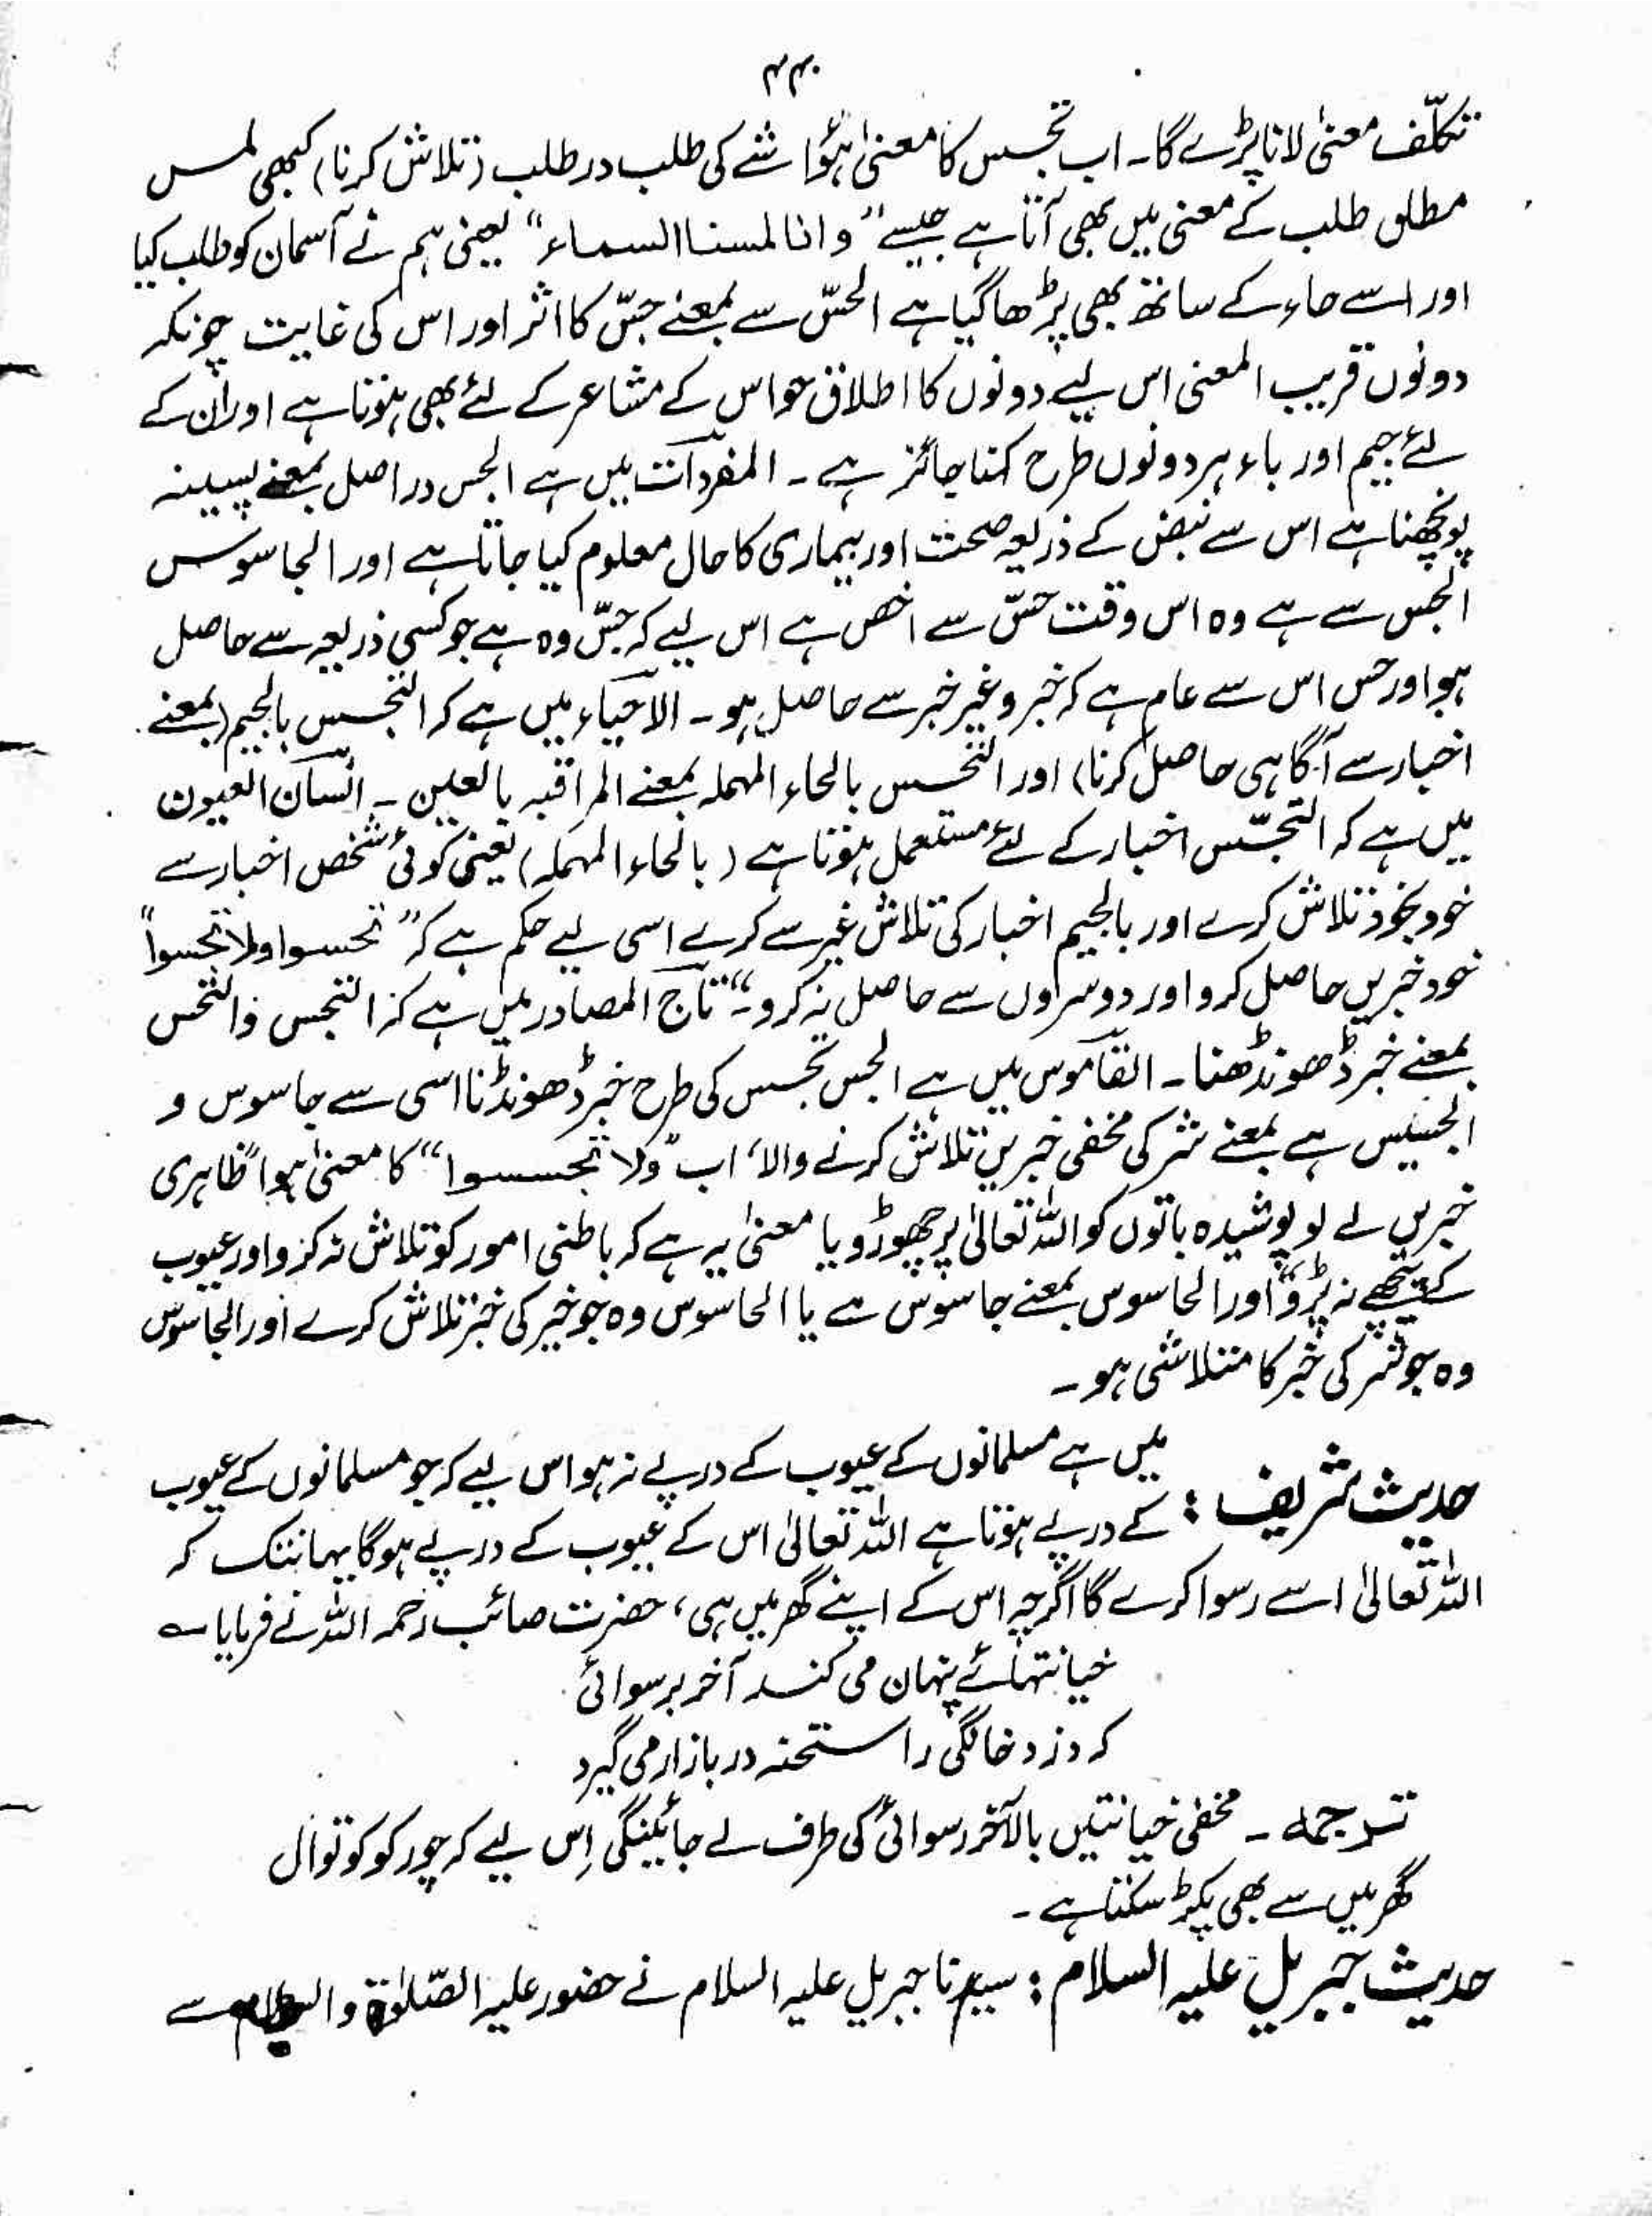 ۴۴۰
تکلّف معنیٰ لانا پڑے گا۔ اب تجسس کا معنیٰ ہؤا شے کی طلب در طلب (تلاش کرنا) کبھی لمس
مطلق طلب کے معنی میں بھی آتا ہے جیسے ”وانا لمسنا السماء“ یعنی ہم نے آسمان کو طلب کیا
اور اسے حاء کے ساتھ بھی پڑھا گیا ہے الحسّ سے بمعنے جسّ کا اثر اور اس کی غایت چونکہ
دونوں قریب المعنی اس لیے دونوں کا اطلاق حواس کے مشاعر کے لئے بھی ہوتا ہے اور ان کے
لئے جیم اور باء ہر دونوں طرح کہنا جائز ہے ۔ المفردات میں ہے الجس دراصل بمعنے پسینہ
پونچھنا ہے اس سے نبض کے ذریعہ صحت اور بیماری کا حال معلوم کیا جاتا ہے اور الجاسوس
الجس سے ہے وہ اس وقت حسّ سے اخص ہے اس لیے کہ جسّ وہ ہے جو کسی ذریعہ سے حاصل
ہو اور حس اس سے عام ہے کہ خبر و غیر خبر سے حاصل ہو ۔ الاحیاء میں ہے کہ التجسس بالجیم (بمعنے
اخبار سے آگاہی حاصل کرنا) اور التحسس بالحاء المہملہ بمعنے المراقبہ بالعین ۔ انسان العیون
میں ہے کہ التجسّس اخبار کے لئے مستعمل ہوتا ہے (بالحاء المہملہ) یعنی کوئی شخص اخبار سے
خود بخود تلاش کرے اور بالجیم اخبار کی تلاش غیر سے کرے اسی لیے حکم ہے کہ ”تحسسوا ولا تجسوا“
خود خبریں حاصل کرو اور دوسروں سے حاصل نہ کرو ۔“ تاج المصادر میں ہے کہ التجس والتحس
بمعنے خبر ڈھونڈھنا ۔ القاموس میں ہے الجس تجسس کی طرح خبر ڈھونڈنا اسی سے جاسوس و
الجسیس ہے بمعنے شر کی مخفی خبریں تلاش کرنے والا، اب ”ولا تجسسوا“ کا معنیٰ ہوا ”ظاہری
خبریں لے لو پوشیدہ باتوں کو اللہ تعالیٰ پر چھوڑو یا معنیٰ یہ ہے کہ باطنی امور کو تلاش نہ کرو اور عیوب
کے پیچھے نہ پڑو“ اور الحاسوس بمعنے جاسوس ہے یا الحاسوس وہ جو خیر کی خبر تلاش کرے اور الجاسوس
وہ جو شر کی خبر کا متلاشی ہو ۔
حدیث شریف : میں ہے مسلمانوں کے عیوب کے درپے نہ ہو اس لیے کہ جو مسلمانوں کے عیوب
کے درپے ہوتا ہے اللہ تعالیٰ اس کے عیوب کے درپے ہوگا یہانتک کہ
اللہ تعالیٰ اسے رسوا کرے گا اگرچہ اس کے اپنے گھر میں ہی، حضرت صائب رحمہ اللہ نے فرمایا ؎
خیانتہائے پنہان می کند آخر برسوائی
کہ دزد خانگی را ستحنہ در بازار می گیرد
ترجمہ ۔ مخفی خیانتیں بالآخر رسوائی کی طرف لے جائینگی اِس لیے کہ چور کو کوتوال
گھر میں سے بھی پکڑ سکتا ہے ۔
حدیث جبریل علیہ السلام : سیدنا جبریل علیہ السلام نے حضور علیہ الصّلوٰۃ والسلام سے